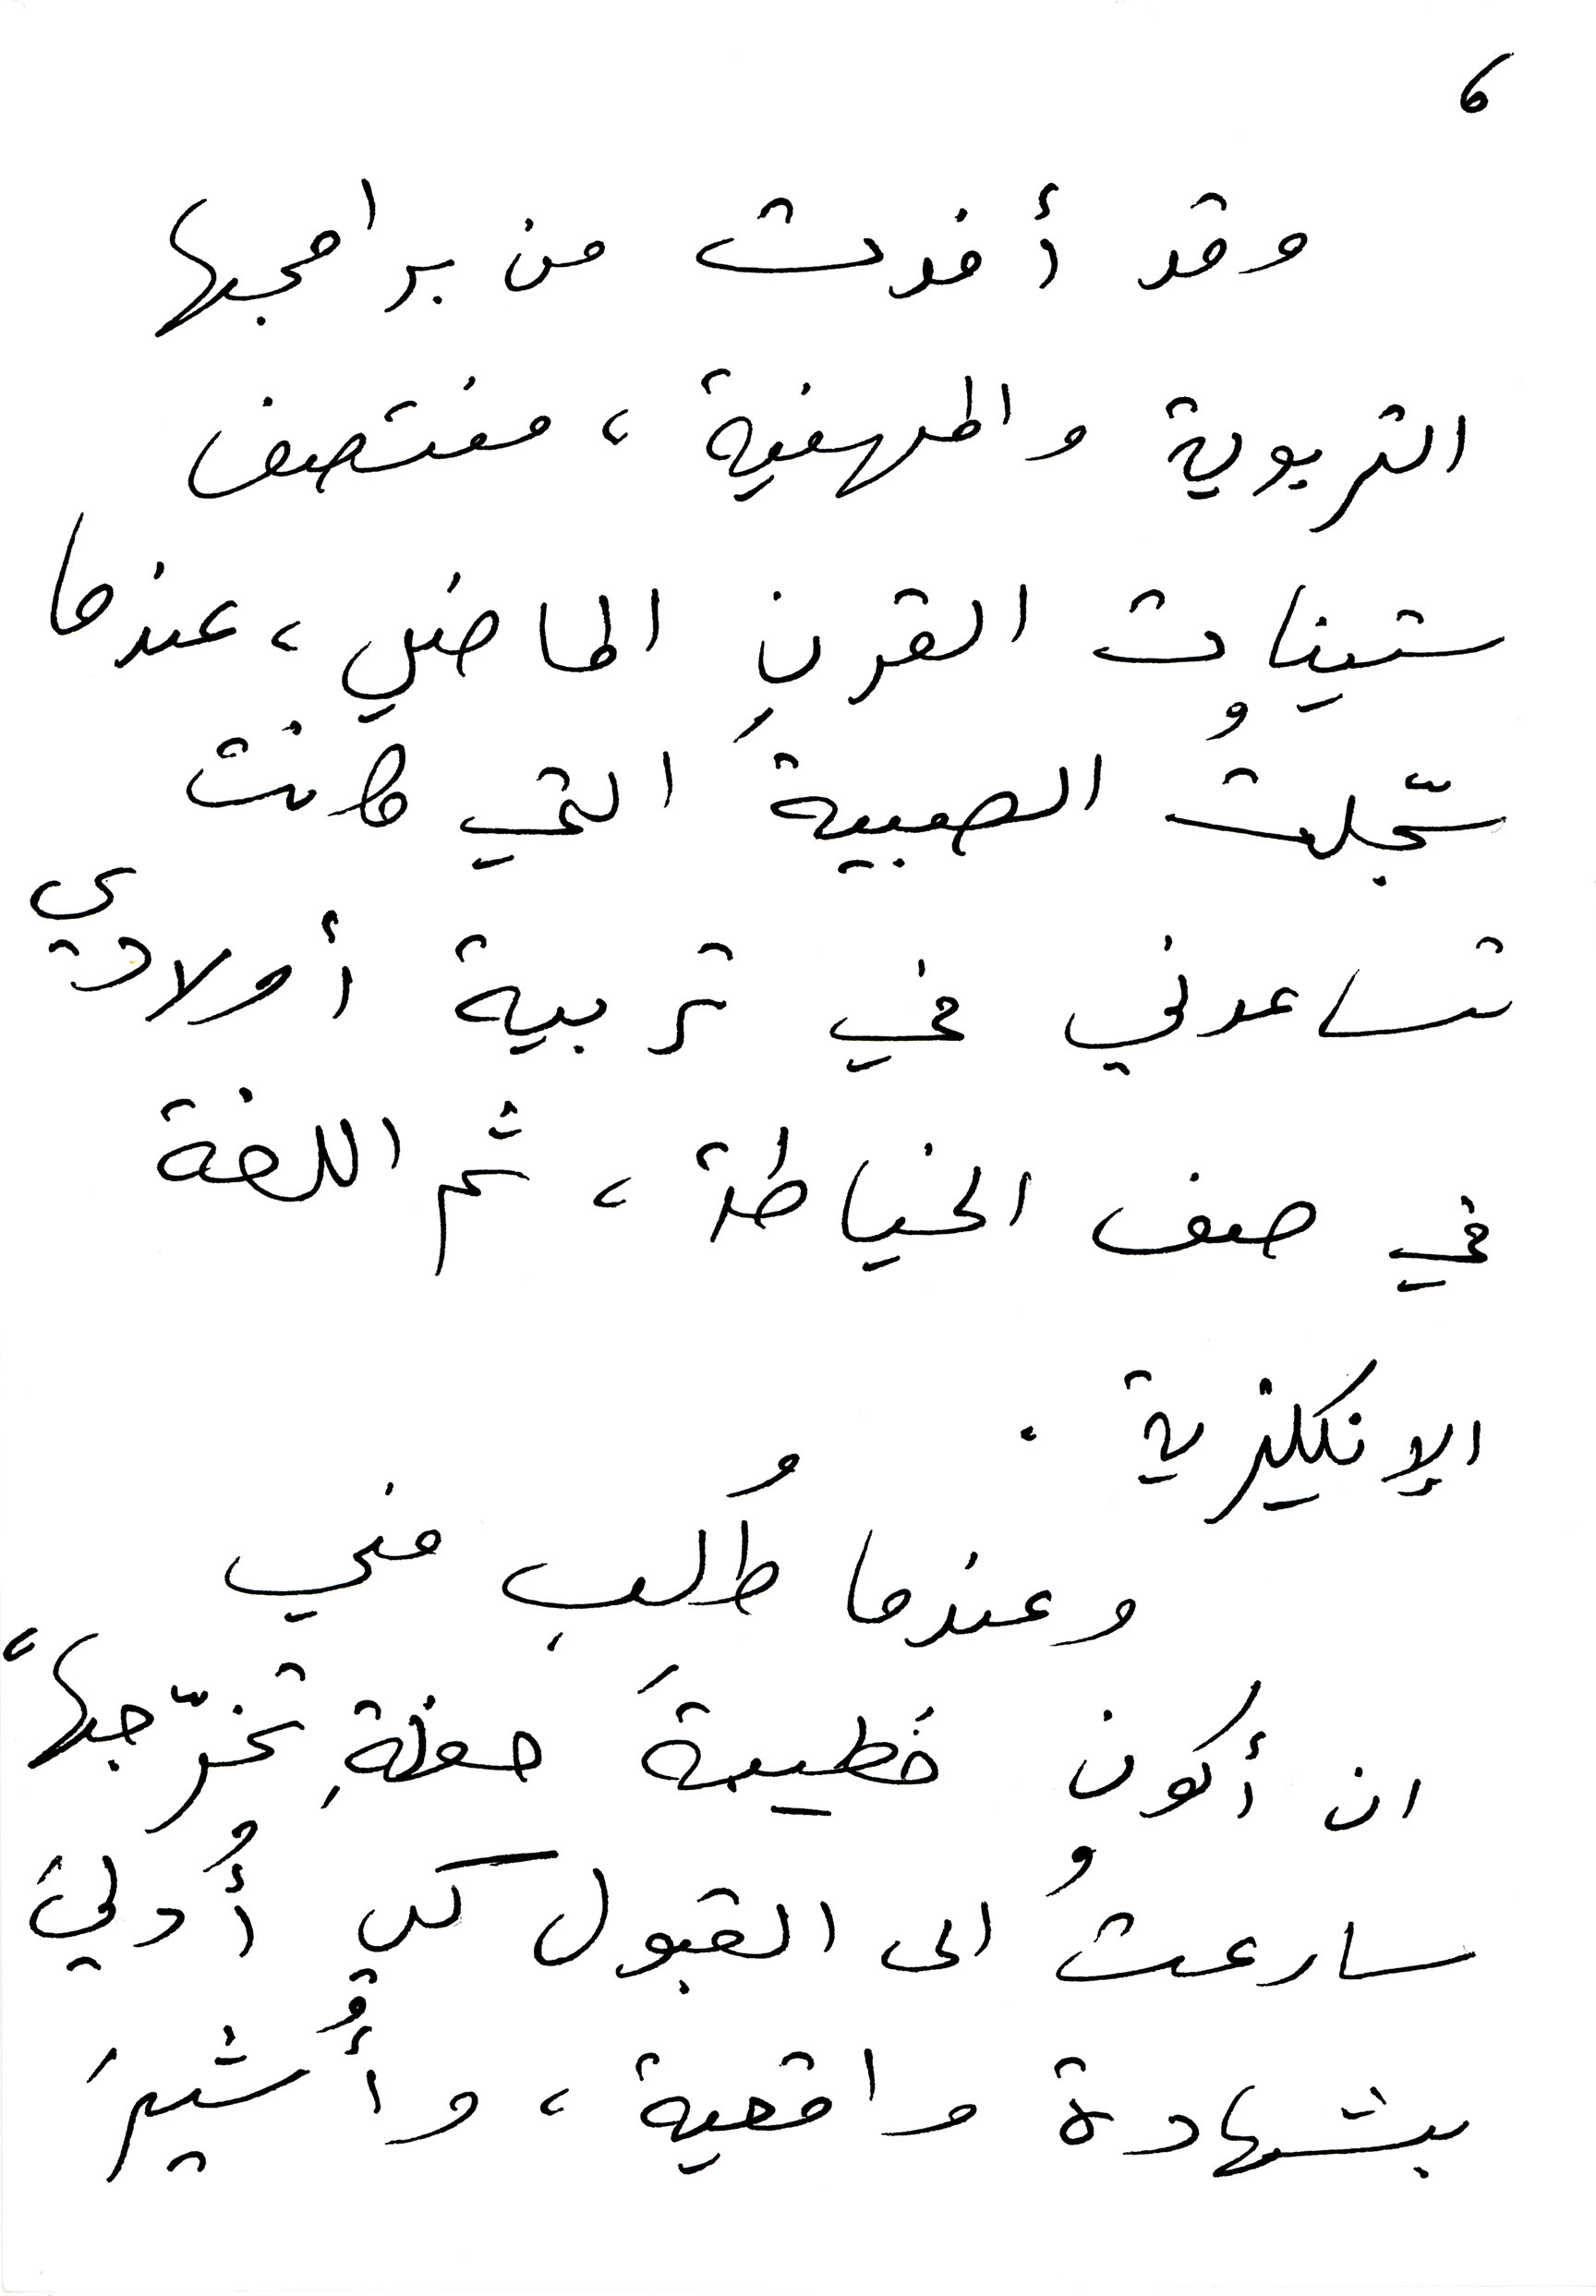 6
وقد أفدت من برامجها
التربوية والمهنية، منتصف
ستينات القرنِ الماضي، عندما
سجّلتُ الصبيةَ التي كانت
تساعدني في تربية أولادي
في صف الخياطة، ثم اللغة
الإنكليزية.
وعندما طُلب مني
ان أكون خَطيبةَ حفلةِ تخرّجها،
سارعتُ الى القبول كي أُدليَ
بشهادة واقعية، وأُشيرَ